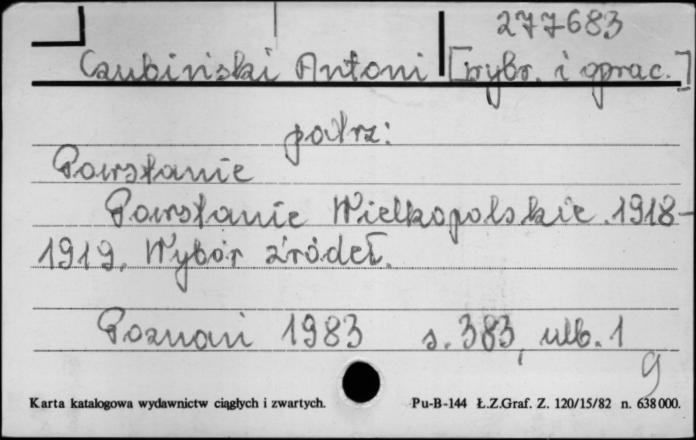 277683
Czubiński Antoni [wybr. i oprac.]
patrz:
Powstanie
Powstanie Wielkopolskie 1918-
1919. Wybór źródeł.
Poznań 1983 s. 383, ulb. 1
9
Karta katalogowa wydawnictw ciągłych i zwartych. Pu-B-144 Ł.Z.Graf. Z. 120/15/82 n. 638000.